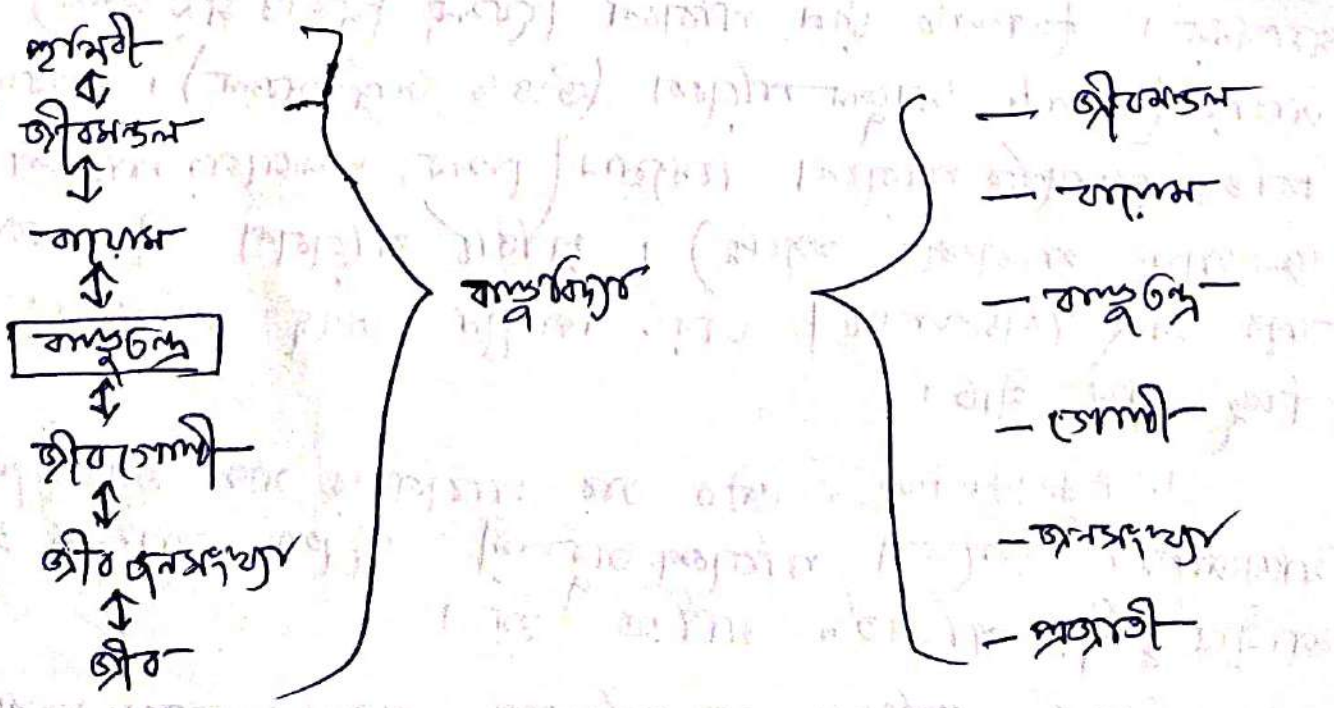 পৃথিবী
জীবমন্ডল
বায়োম
বাস্তুতন্ত্র
জীবগোষ্ঠী
জীব জনসংখ্যা
জীব
বাস্তুবিদ্যা
— জীবমন্ডল
— বায়োম
— বাস্তুতন্ত্র
— গোষ্ঠী
— জনসংখ্যা
— প্রজাতী